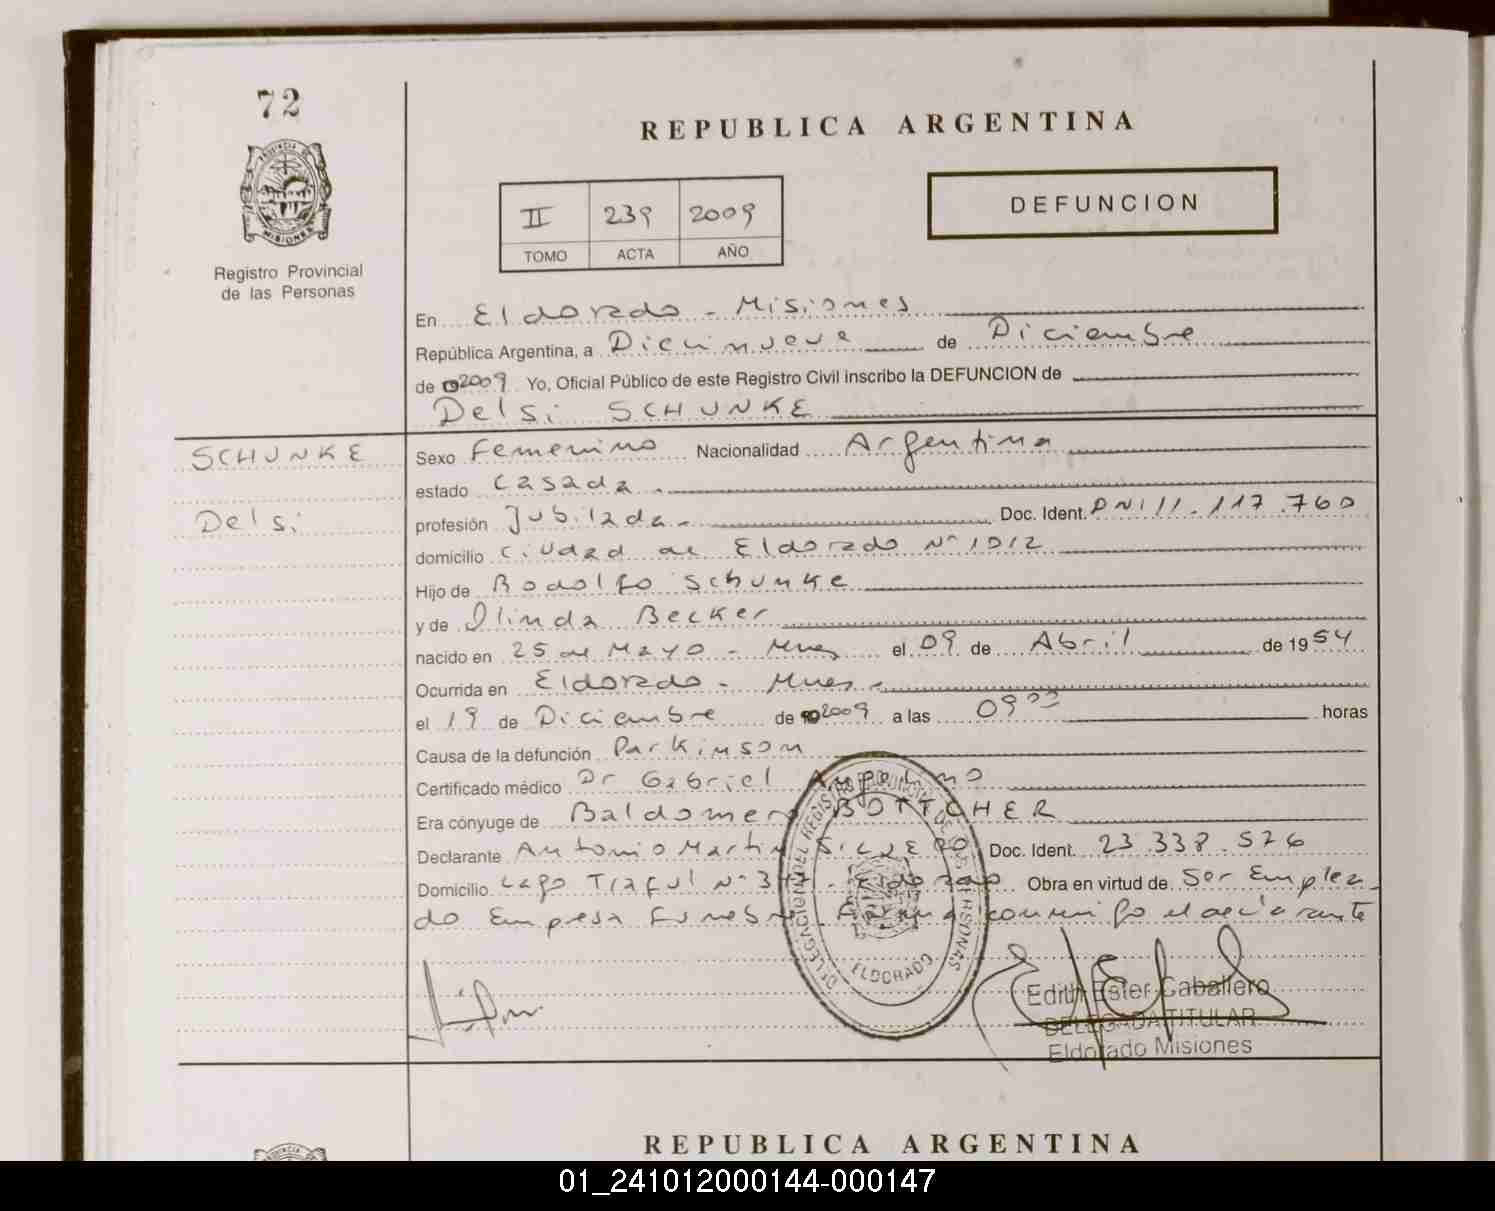 72
REPUBLICA ARGENTINA
PROVINCIA DE
MISIONES
Registro Provincial
de las Personas
II 239 2009
TOMO ACTA AÑO
DEFUNCION
En Eldorado - Misiones
República Argentina, a Diecinueve de Diciembre
de 2009 Yo, Oficial Público de este Registro Civil inscribo la DEFUNCION de
Delsi SCHUNKE
SCHUNKE
Delsi
Sexo Femenino Nacionalidad Argentina
estado casada.
profesión Jubilada.- Doc. Ident. DNI 11.117.760
domicilio Ciudad de Eldorado Nº 1012
Hijo de Rodolfo Schunke
y de Olinda Becker
nacido en 25 de Mayo - Mnes el 09 de Abril de 1954
Ocurrida en Eldorado - Mnes.
el 19 de Diciembre de 2009 a las 09 00 horas
Causa de la defunción Parkinson
Certificado médico Dr Gabriel
Era cónyuge de Baldomero BOTTCHER
Declarante Antonio Martin Doc. Ident. 23.338.576
Domicilio Lago Traful Nº Eldorado Obra en virtud de Ser Emplea-
do Empresa Funebre. Firma conmigo el declarante
DELEGACION DEL REGISTRO PROVINCIAL DE LAS PERSONAS
ELDORADO
Edith Ester Caballero
DELEGADA TITULAR
Eldorado Misiones
REPUBLICA ARGENTINA
PROVINCIA DE
01_241012000144-000147